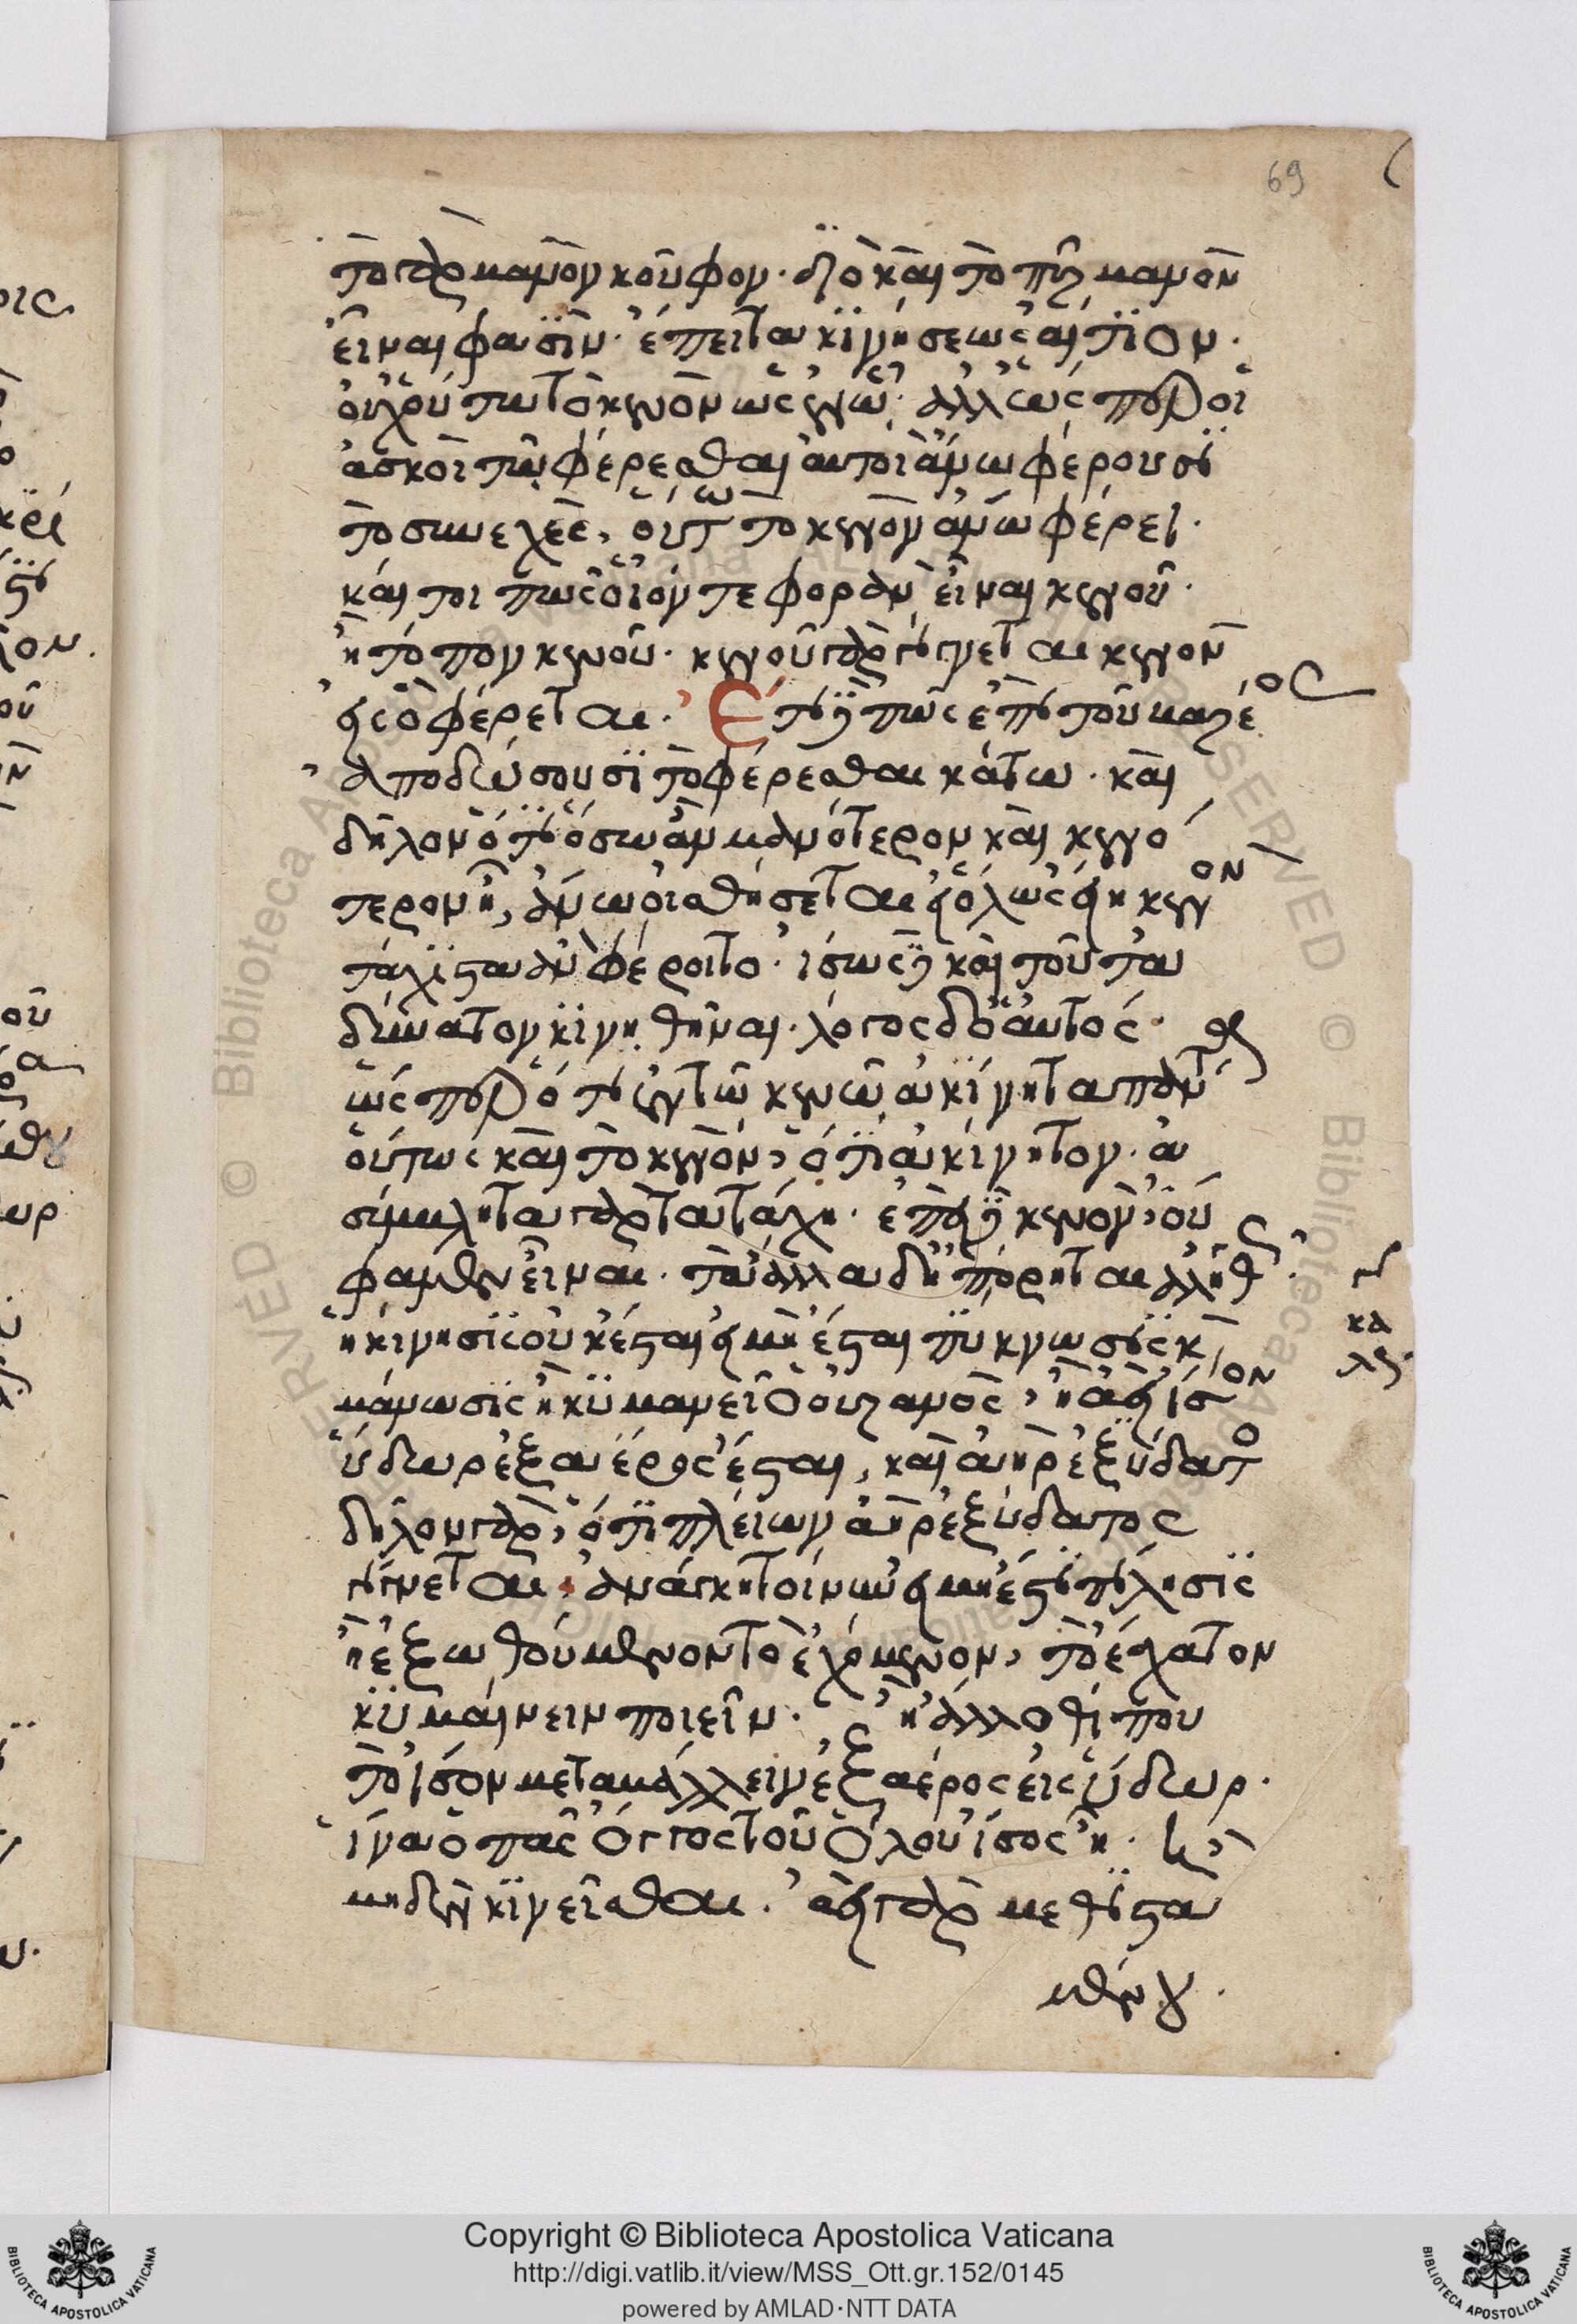 69
τὸ γὰρ μανὸν κοῦφον· διὸ καὶ τὸ πῦρ μανὸν
εἶναι φασὶν· ἔπειτα κινήσεως αἴτιον·
οὐχ οὕτω τὸ κενὸν ὡς ἐν ᾧ· ἀλλ' ὥσπερ οἱ
ἀσκοὶ τῷ φέρεσθαι αὐτοὶ ἄνω φέρουσι
τὸ συνεχὲς, οὕτω τὸ κενὸν ἄνω φέρει·
καίτοι πῶς οἷόν τε φορὰν εἶναι κενοῦ·
ἢ τόπον κενοῦ· κενοῦ γὰρ γίγνεται κενὸν
εἰς ὃ φέρεται· Ἔτι δὲ πῶς ἐπὶ τοῦ βαρέος
ἀποδώσουσι τὸ φέρεσθαι κάτω· καὶ
δῆλον ὅτι ὅσῳ ἂν μανότερον καὶ κενό
τερον ᾖ, ἄνω οἰσθήσεται· εἰ ὅλως εἴη κενὸν
τάχιστα ἂν φέροιτο· ἴσως δὲ καὶ τοῦτ' ἀ
δύνατον κινηθῆναι· λόγος δ' ὁ αὐτός·
ὥσπερ ὅτι ἐν τῷ κενῷ ἀκίνητα πάντα
οὕτως καὶ τὸ κενὸν, ὅτι ἀκίνητον· ἀ
σύμβλητα γὰρ τὰ τάχη· ἐπεὶ δὲ κενὸν οὔ
φαμεν εἶναι· τὰ ἄλλα δ' ἠπόρηται ἀληθῶς·
ἢ κίνησις οὐκ ἔσται εἰ μὴ ἔσται πύκνωσις καὶ
μάνωσις ἢ κυμανεῖ ὁ οὐρανὸς, ἢ ἀεὶ ἴσον
ὕδωρ ἐξ ἀέρος ἔσται, καὶ ἀὴρ ἐξ ὕδατος
δῆλον γὰρ, ὅτι πλείων ἀὴρ ἐξ ὕδατος
γίνεται· ἀνάγκη τοίνυν εἰ μὴ ἔστι πίλησις
ἢ ἐξωθούμενον τὸ ἐχόμενον, τὸ ἔσχατον
κυμαίνειν ποιεῖν· ἢ ἄλλοθί που
τὸ ἴσον μεταβάλλειν ἐξ ἀέρος εἰς ὕδωρ·
ἵνα ὁ πᾶς ὄγκος τοῦ ὅλου ἴσος ᾖ· ἢ
μηδὲν κινεῖσθαι· ἀεὶ γὰρ μεθιστα
μένου·
Copyright © Biblioteca Apostolica Vaticana
http://digi.vatlib.it/view/MSS_Ott.gr.152/0145
powered by AMLAD·NTT DATA